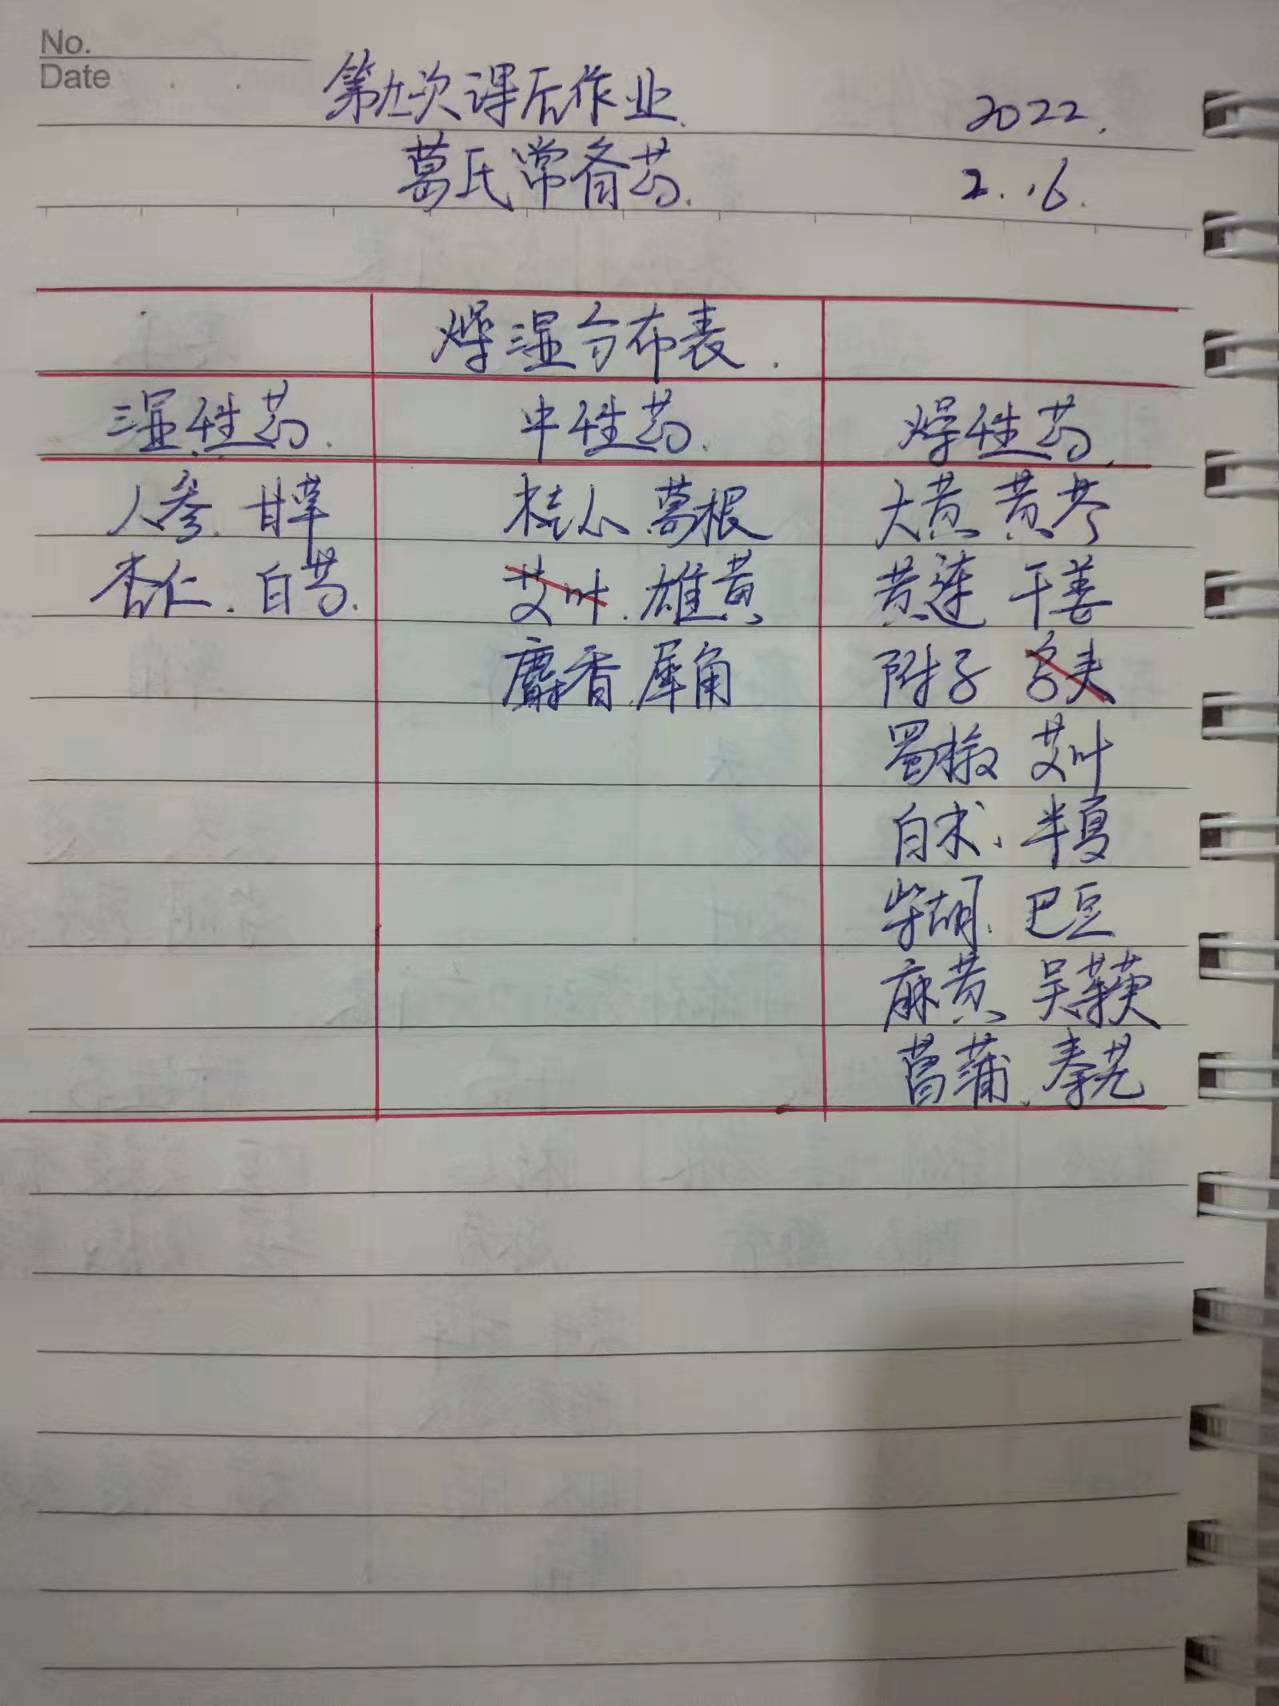 No.
Date
第九次课后作业. 2022.
葛氏常备药. 2.16.
燥湿分布表.
湿性药. 中性药. 燥性药.
人参. 甘草 桂心 葛根 大黄 黄芩
杏仁. 白芍. 艾叶. 雄黄 黄连 干姜
麝香. 犀角 附子
蜀椒 艾叶
白术、半夏
柴胡. 巴豆
麻黄 吴茱萸
菖蒲. 秦艽